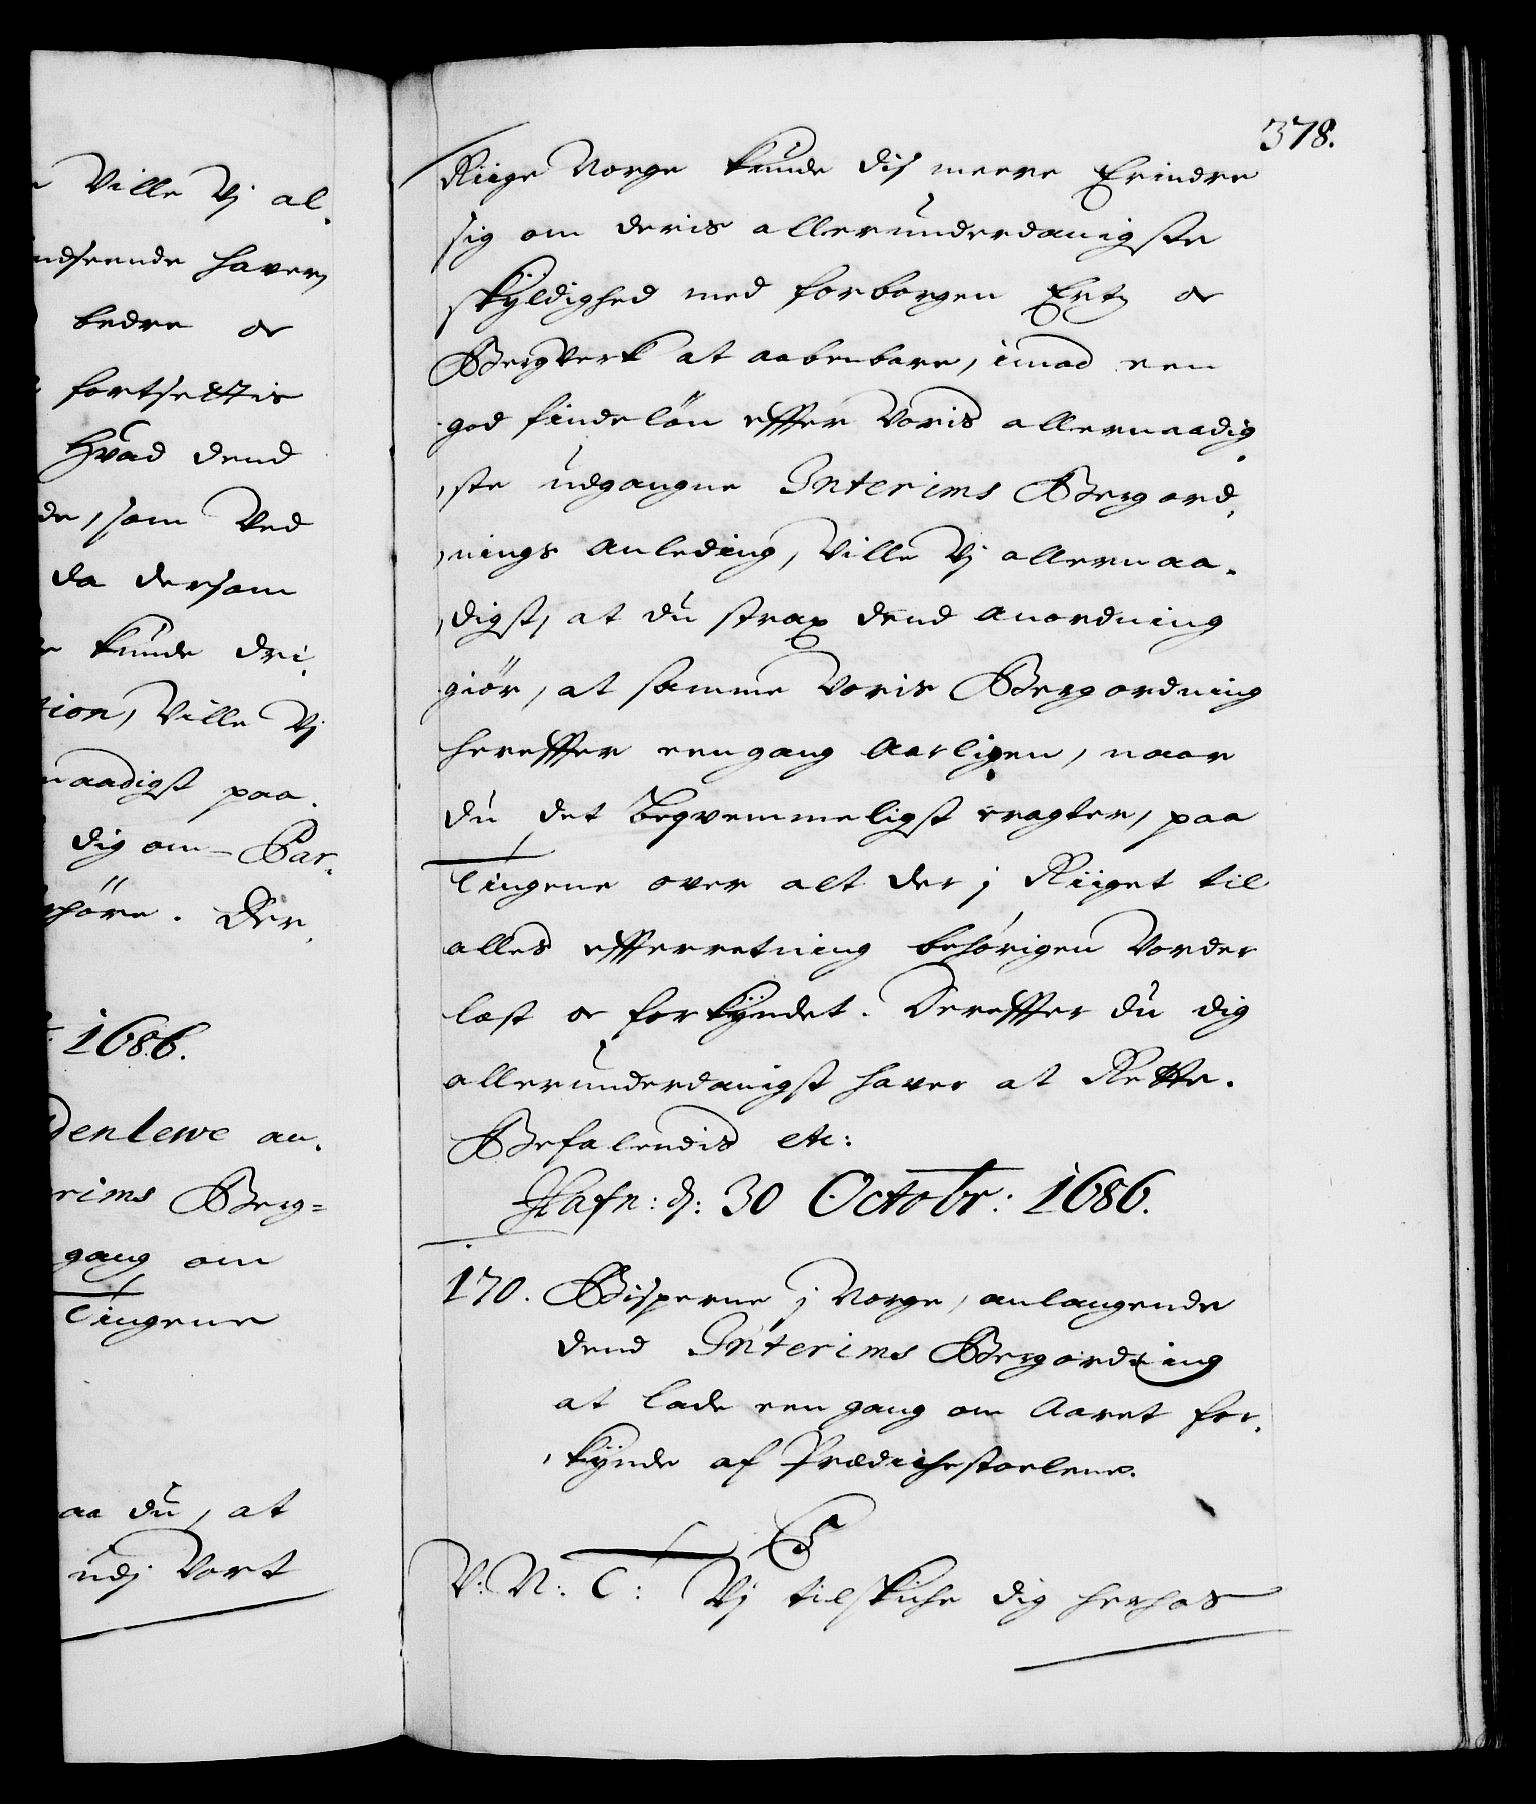 e Ville Vj al,
ndseende haver,
bedre oc
fortsettis
Hvad dend
de, som Ved
da dersom
e kunde dri,
tion, Ville Vj
naadigst paa.
dig om Par,
høre. Der,
1686.
denlewe an,
rims Berg=
gang om
Tingene
aa du, at
udj Vort
378.
Riige Norge kunde dis meere Erindre
sig om deris allerunderdanigste
skyldighed med forborgen Ertz oc
Bergverk at aabenbare, imod een
god findeløn effter Voris allernaadig,
,ste udgangne Interims Bergord,
,nings anleding, Ville Vj allernaa,
,digst, at du strax dend anordning
giør, at samme Voris Bergordning
hereffter eengang Aarligen, naar
du det Beqvemmeligst eragter, paa
Tingene over alt der j Riiget til
alles effterretning behørigen Vorder
læst oc forkyndet. Dereffter du dig
allerunderdanigst haver at Rette.
Befalendis etc:
Hafn: d: 30 Octobr: 1686.
170. Bisperne j Norge, anlangende
dend Interims Bergordning
at lade een gang om Aaret for,
,kynde af Prædichestoelene.
C5
V: N: T: Vj tilskiche dig herhos